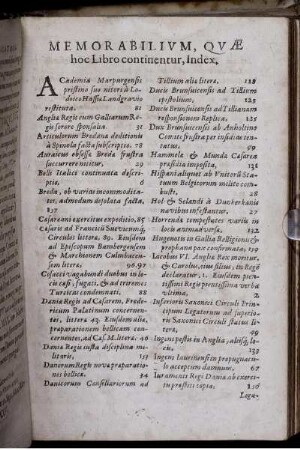 MEMORABILIVM, QVÆ
hoc Libro continentur, Index.
ACademia Marpurgensis
pristino suo nitori à Lodovico
Hassiæ Landgravio
restituta. 81
Angliæ Regis cum Galliarum Regis
sorore sponsalia 31
Articulorum Bredana deditionis
à Spinola facta subscriptio. 78
Annaticus obsessæ Breda frustra
succurrere nititur. 29
Belli Italici continuata descriptio.
6
Breda, ob varias incommoditates,
admodum defolata facta.
157
Casareani exercitus expeditio, 85
Casaris ad Franciscü Suevicum,
Circulos litera. 89. Eiusdem
ad Episcopum Bambergensem
& Marchionem Culmbaccensem
litera; 96.97
Cosacci vagabundi duobus in locis
casi, fugati, & ad triremes
Turcicas condemnati. 88
Dania Regis ad Casarem, Fredericum
Palatinum concernentes,
litera 43. Eiusdem alia,
praparationem bellicam
concernentes, ad Cas. M. litera. 46
Dania Regis iusta disciplina militaris,
131
Danorum Regis nova praparationes
bellica. 34
Danicorum Consiliariorum ad
Tillium alia litera. 128
Ducis Brunsuicensis ad Tillium
epistolium. 125
Ducis Brunsuicensis ad Tillianam
responsionem Replica. 125
Dux Brunsuicensis ab Anholtino
Comite frustra per insidias tentatus.
34
Hammela & Munda Casarea
præsidia imposita, 125
Hispani aliquot ab Vnitorū Statuum
Belgicorum milite concusi.
28
Hol & Selandi à Duckerkanis
navibus infestantur. 27
Horrenda tempestates variis in
locis atmena varia. 32
Hugenotis in Gallia Religionis exercitium
prohibetur. 139
Iacobus VI. Anglia Rex moritur,
& Carolus, eius filius, in Regē
declaratur, 1. Eiusdem pientissimi
Regis pentissima verba
ultima, 2
Inferioris Saxonici Circuli Principum
Legatorum ad superioris
Saxonici Circuli status litera,
49
Ingens pestis in Anglia, aliisq; locis,
139
Ingens lauriensis in propugnaculo
acceptum damnum, 67
Iuramenti Regi Dania ab exercitu
præstiti copia. 130
Lega-